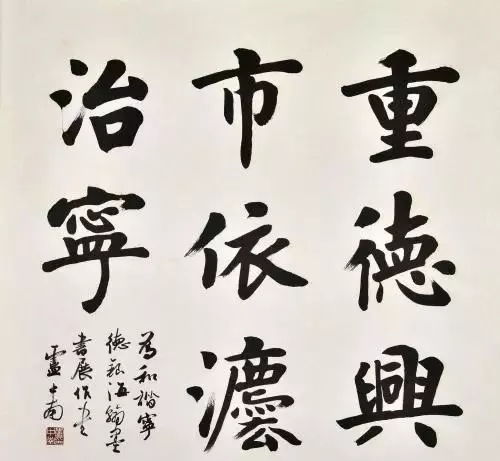 重德興
市依灋
治寧
為和諧寧
德銀海翰墨
書展作書
盧中南